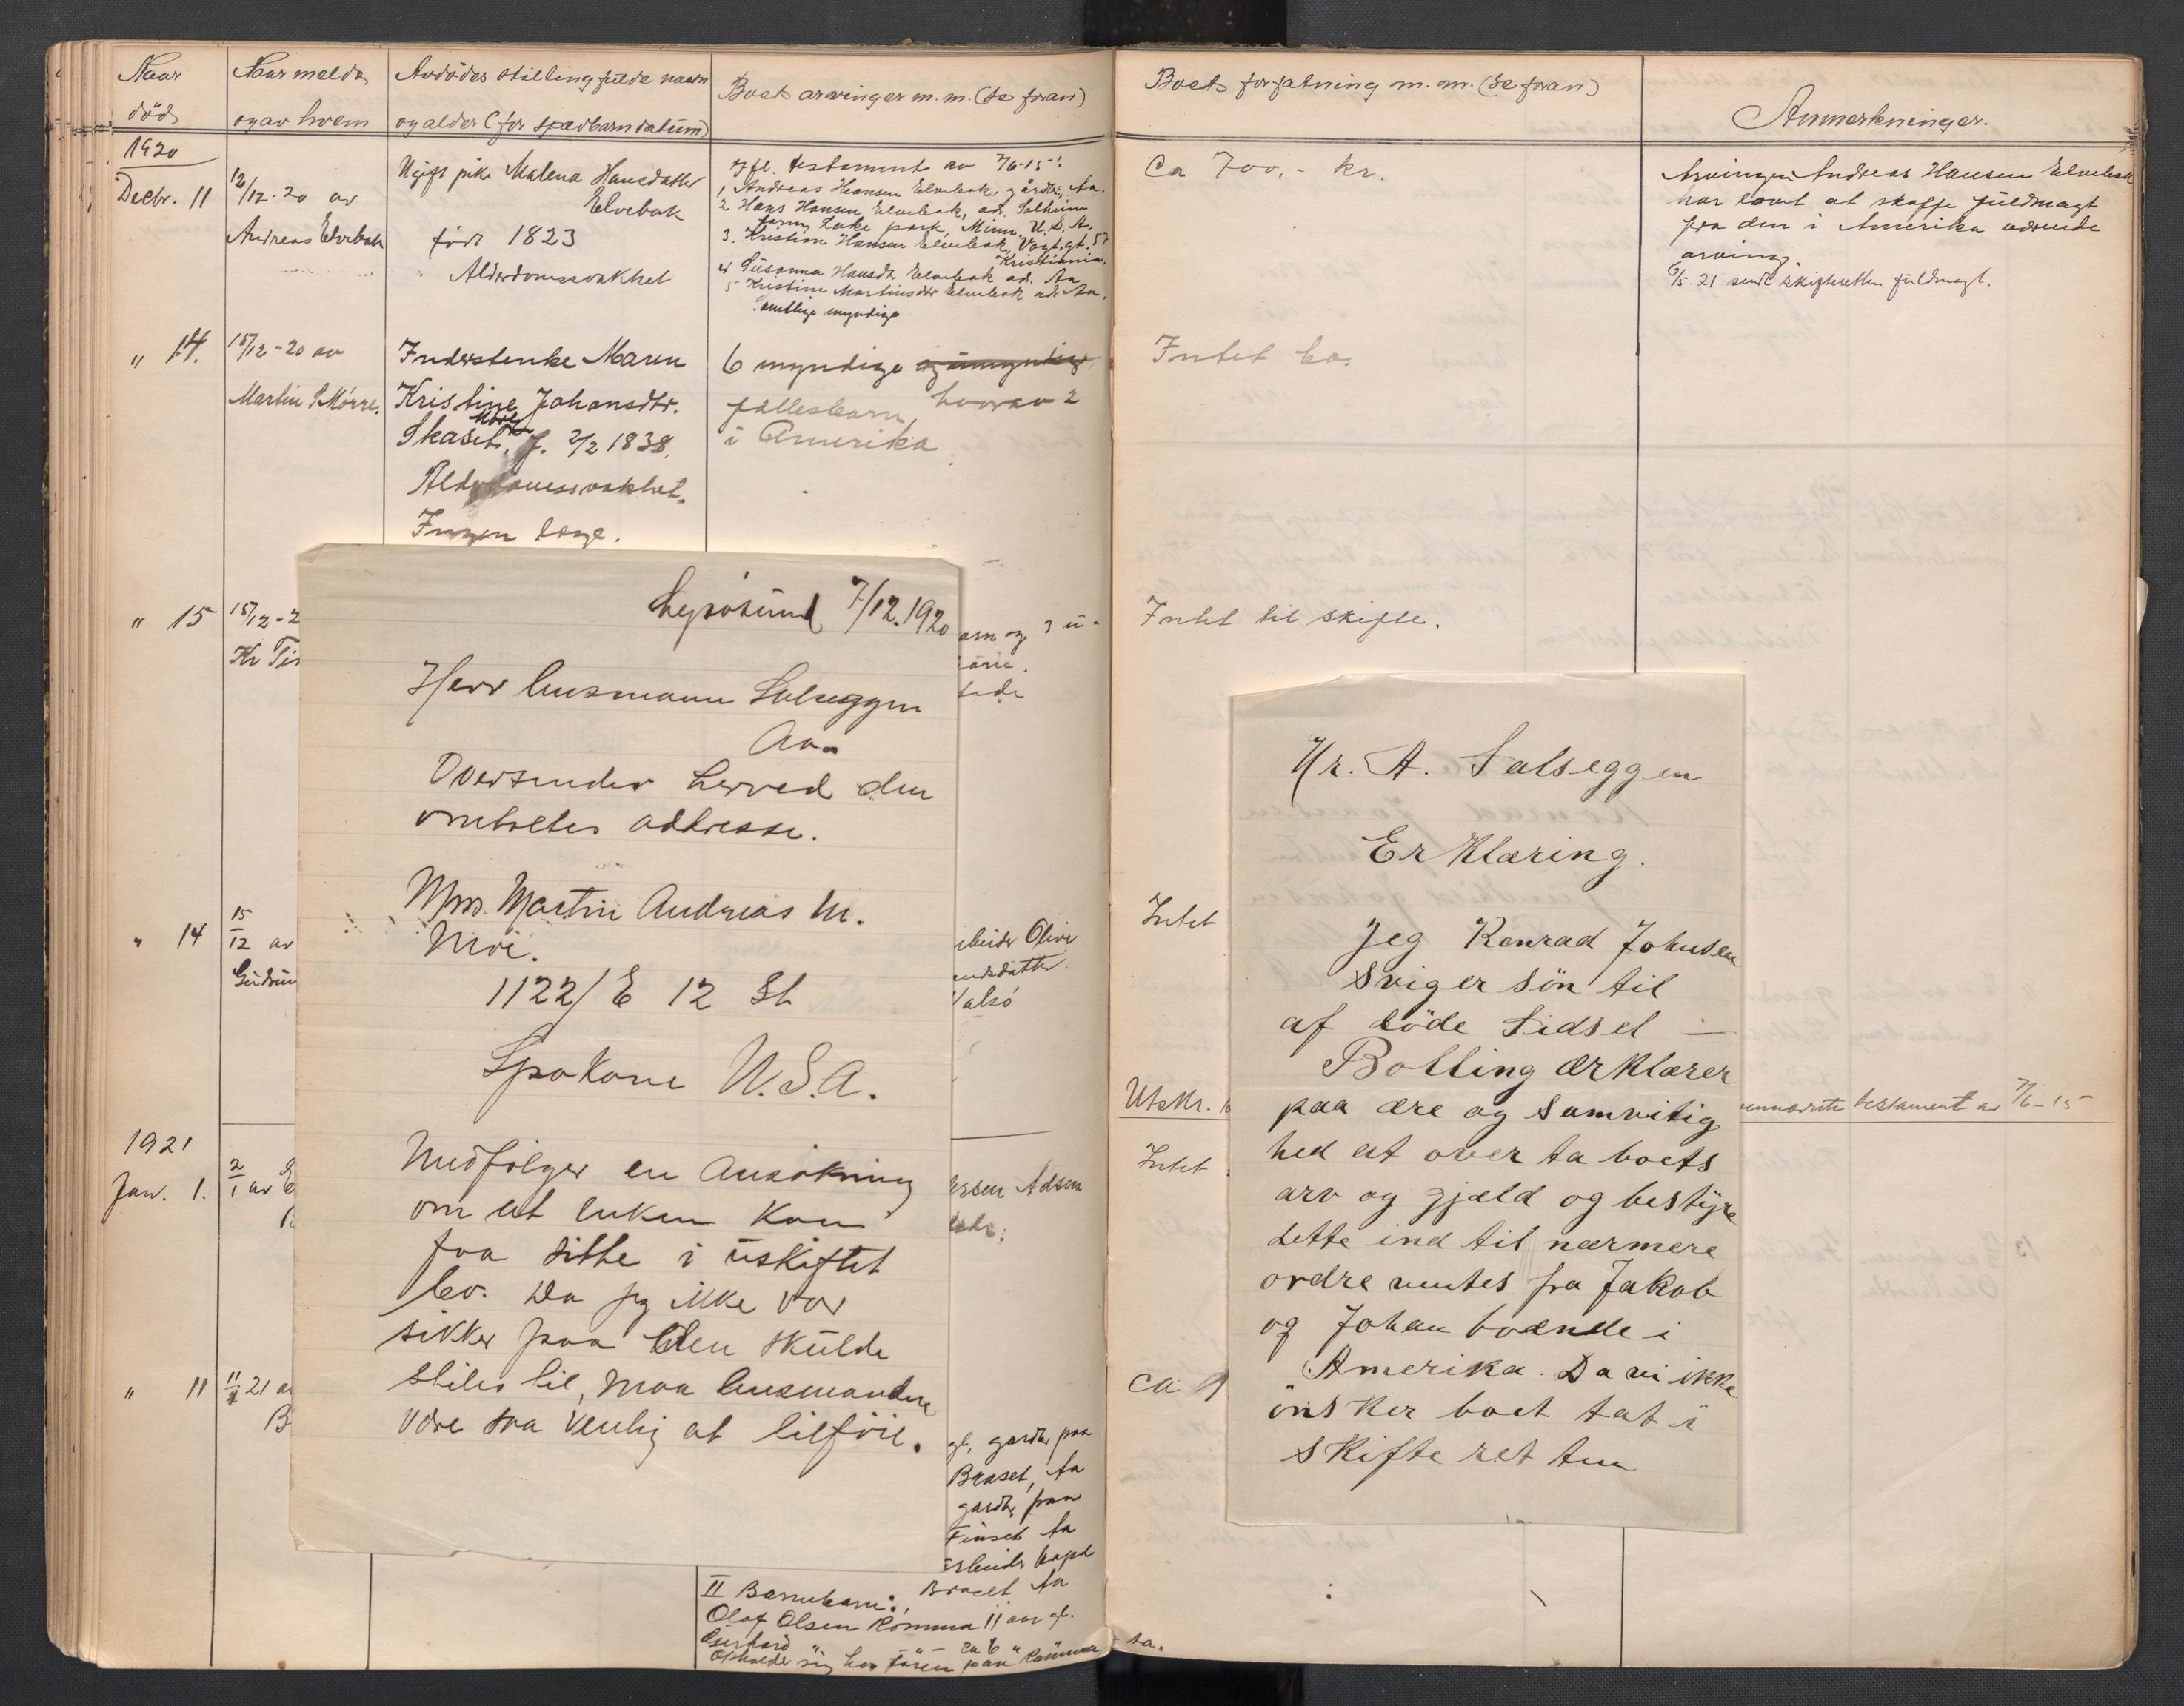 Naar
død
Naar meldt
og av hvem
Avdödes stilling fulde navn
og alder (for spædbarn datum)
Boets arvinger m. m. (se foran)
Boets forfatning m. m. (se foran)
Anmerkninger.
1920
Decbr. 11
12/12-20 av
Andreas Elvebak
Ugift pike Malena Hansdatter
Elvebak
født 1823
Alderdomssvakhet
Jfl. testament av 7/6-15:
1, Andreas Hansen Elvebak, gårdbr, Aa.
2 Hans Hansen Elvebak, adr. Solheim
farm, Lake park, Minn. U. S. A.
3. Kristian Hansen Elvebak, Vogtgt. 57
Kristiania.
4 Susanna Hansdt. Elvebak adr. Aa
5 Kristine Martinsdtr Elvebak adr Aa.
samtlige myndige
Ca 700,- kr.
Arvingen Andreas Hansen Elvebak
har lovet at skaffe fuldmagt
fra den i Amerika værende
arving.
5/5-21 sendt skifteretten fuldmagt.
" 14.
15/12-20 av
Martin S Mörre.
Inderstenke Maren
Kristine Johansdtr.
Skaset, f. 2/2 1838.
Alderdomssvakhet.
Ingen læge.
6 myndige og umyndige
fællesbarn, hvorav 2
i Amerika
Intet bo.
" 15
15/12-2
Kr Tis
arn og 3 u-
Intet til skifte.
" 14
15/12 av
Gudrun
arbeider Oline
andsdatter
Valsö
Intet
Utskr.
ennævnte testament av 7/6-15
1921
Jan. 1.
2/1 av
ersen Adsen
Intet
" 11
11/1 21 a
B
ca
gl. gardbr, paa
Braset, Aa
gardbr, paa
Finset Aa
arbeider
Braset Aa
II Barnebarn:
Olaf Olsen Romma 11 aar gl.
Gerhard " " ca 6 "
Opholder sig hos faren paa Romma
Aa.
Lysösund 7/12.1920
Herr Lensmann Selseggen
Aa.
Oversender herved den
omtalte addresse.
Mrs Martin Andreas M.
Moe.
1122/ E 12 St
Spokane U.S.A.
Medfølger en Ansökning
om at enken kan
faa sitte i uskiftet
bo. Da jeg ikke var
sikker paa hvem den skulde
stiles til, maa lensmanden
være saa venlig at tilföie.
Hr. A. Salseggen
Erklæring.
Jeg Konrad Johnsen
Sviger sön til
af döde Sidsel —
Bolling ærklærer
paa ære og samvitig
hed at over ta boets
arv og gjæld og bestyre
dette ind til nærmere
ordre ventes fra Jakob
og Johan boende i
Amerika. Da vi ikke
önsker boet tat i
skifte ret ten